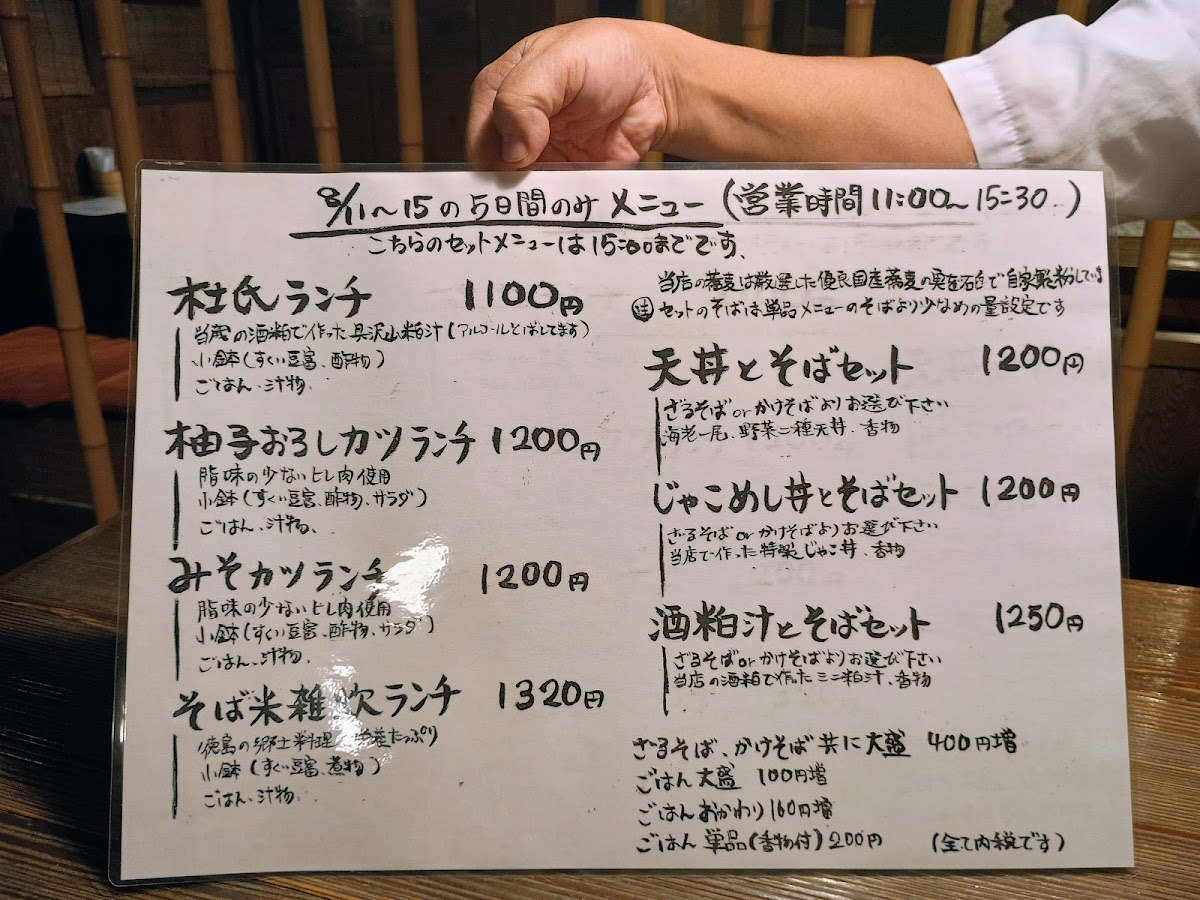 8/11〜15の5日間のみメニュー(営業時間11:00〜15:30.)
こちらのセットメニューは15:00までです、
杜氏ランチ 1100円
当蔵の酒粕で作った具沢山粕汁(アルコールとばしてます)
小鉢(すくい豆富、酢物)
ごはん、汁物、
柚子おろしカツランチ 1200円
脂味の少ないヒレ肉使用
小鉢(すくい豆富、酢物、サラダ)
ごはん、汁物、
みそカツランチ 1200円
脂味の少ないヒレ肉使用
小鉢(すくい豆富、酢物、サラダ)
ごはん、汁物、
そば米雑炊ランチ 1320円
徳島の郷土料理 たっぷり
小鉢(すくい豆富、煮物)
ごはん、汁物、
当店の蕎麦は厳選した優良国産蕎麦の実を石臼で自家製粉しています
注 セットのそばは単品メニューのそばより少なめの量設定です
天丼とそばセット 1200円
ざるそばorかけそばよりお選び下さい
海老一尾、野菜二種天丼、香物
じゃこめし丼とそばセット 1200円
ざるそばorかけそばよりお選び下さい
当店で作った特製じゃこ丼、香物
酒粕汁とそばセット 1250円
ざるそばorかけそばよりお選び下さい
当店の酒粕で作ったミニ粕汁、香物
ざるそば、かけそば共に大盛 400円増
ごはん大盛 100円増
ごはんおかわり160円増
ごはん単品(香物付)200円 (全て内税です)